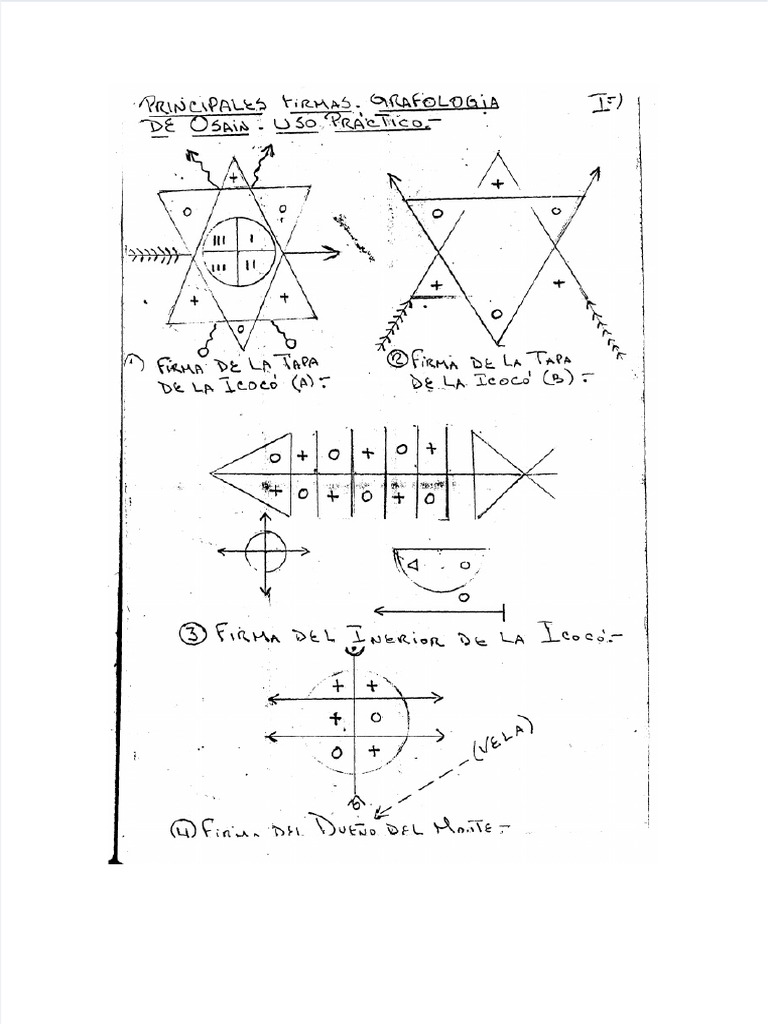 PRINCIPALES FIRMAS. GRAFOLOGIA I-)
DE OSAIN. USO PRÁCTICO.-
1) FIRMA DE LA TAPA
DE LA ICOCÓ (A).-
2 FIRMA DE LA TAPA
DE LA ICOCÓ (B).-
3 FIRMA DEL INERIOR DE LA ICOCÓ.-
(VELA)
4 FIRMA DEL DUEÑO DEL MONTE.-